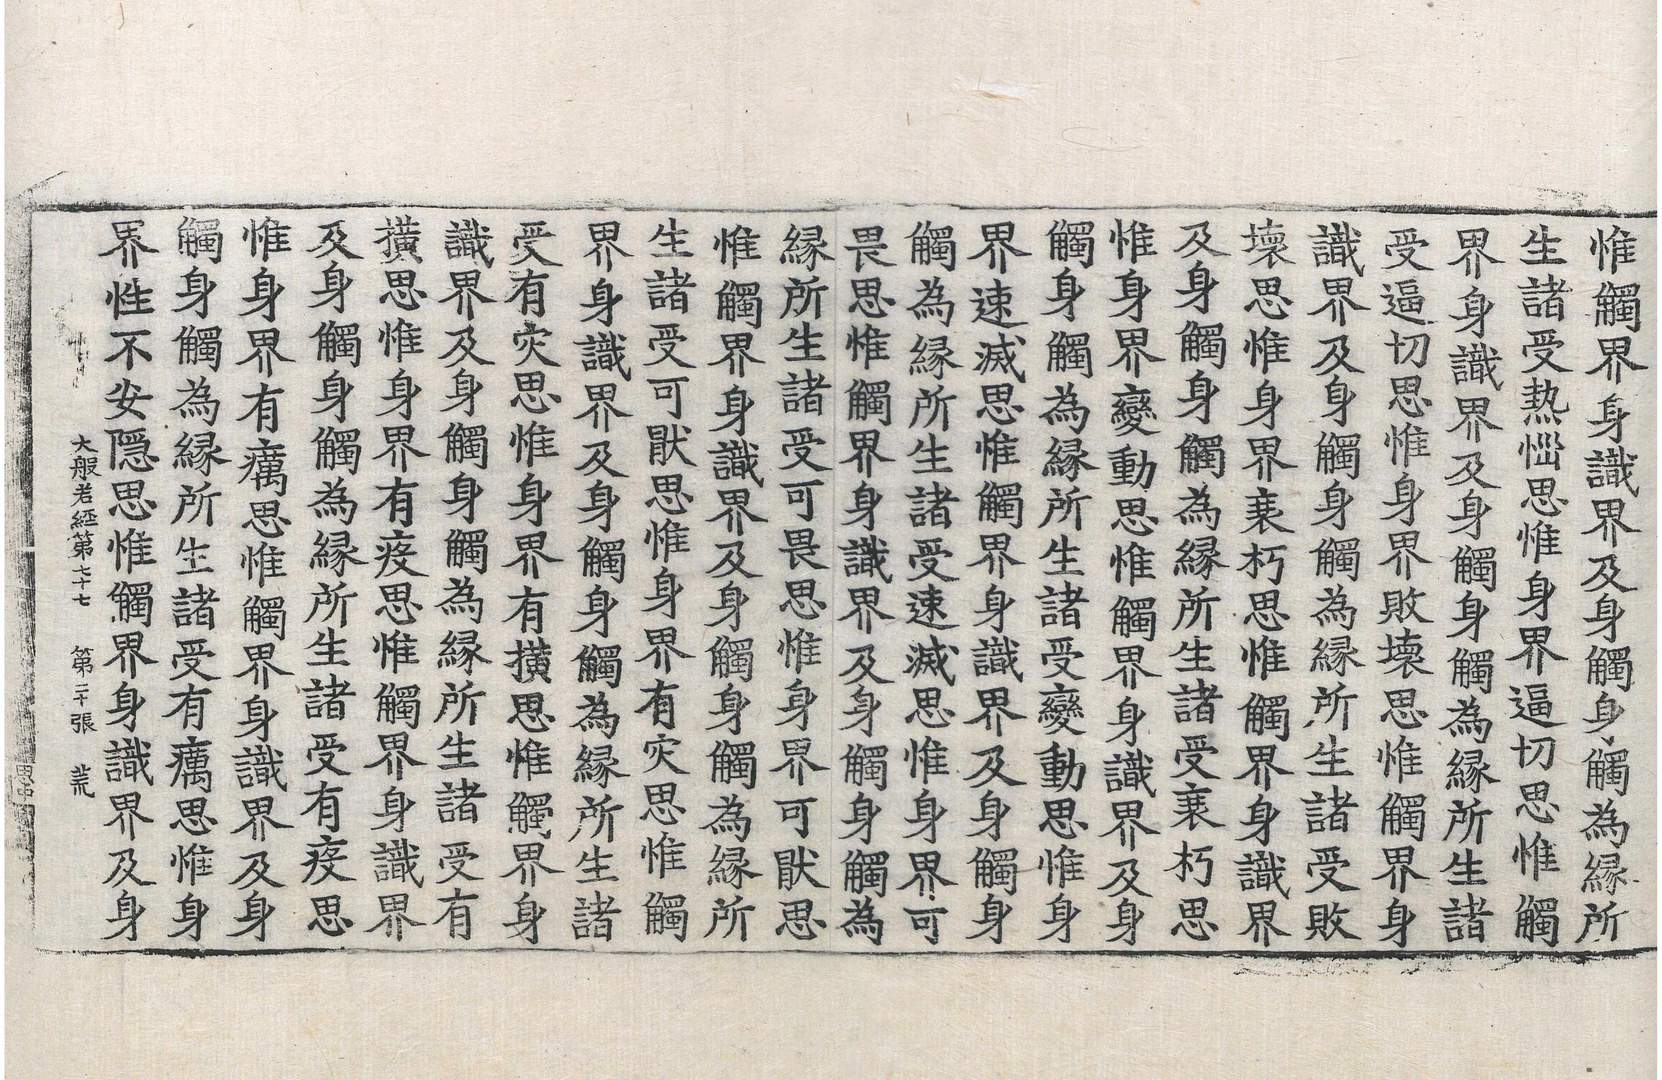 惟觸界身識界及身觸身觸為緣所
生諸受熱惱思惟身界逼切思惟觸
界身識界及身觸身觸為緣所生諸
受逼切思惟身界敗壞思惟觸界身
識界及身觸身觸為緣所生諸受敗
壞思惟身界衰朽思惟觸界身識界
及身觸身觸為緣所生諸受衰朽思
惟身界變動思惟觸界身識界及身
觸身觸為緣所生諸受變動思惟身
界速滅思惟觸界身識界及身觸身
觸為緣所生諸受速滅思惟身界可
畏思惟觸界身識界及身觸身觸為
緣所生諸受可畏思惟身界可猒思
惟觸界身識界及身觸身觸為緣所
生諸受可猒思惟身界有灾思惟觸
界身識界及身觸身觸為緣所生諸
受有灾思惟身界有橫思惟觸界身
識界及身觸身觸為緣所生諸受有
橫思惟身界有疫思惟觸界身識界
及身觸身觸為緣所生諸受有疫思
惟身界有癘思惟觸界身識界及身
觸身觸為緣所生諸受有癘思惟身
界性不安隱思惟觸界身識界及身
大般若經第七十七 第二十張 荒